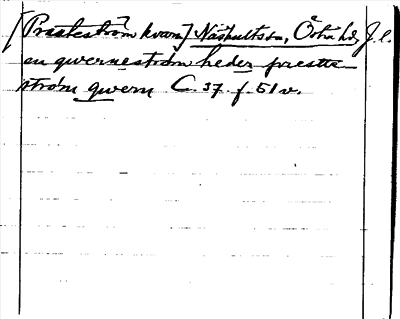 [Prästeström kvarn] Näshultssn, Östra hd, J.l.
en qwerneström heder prestte
ström qwern C. 37. f. 51 v.